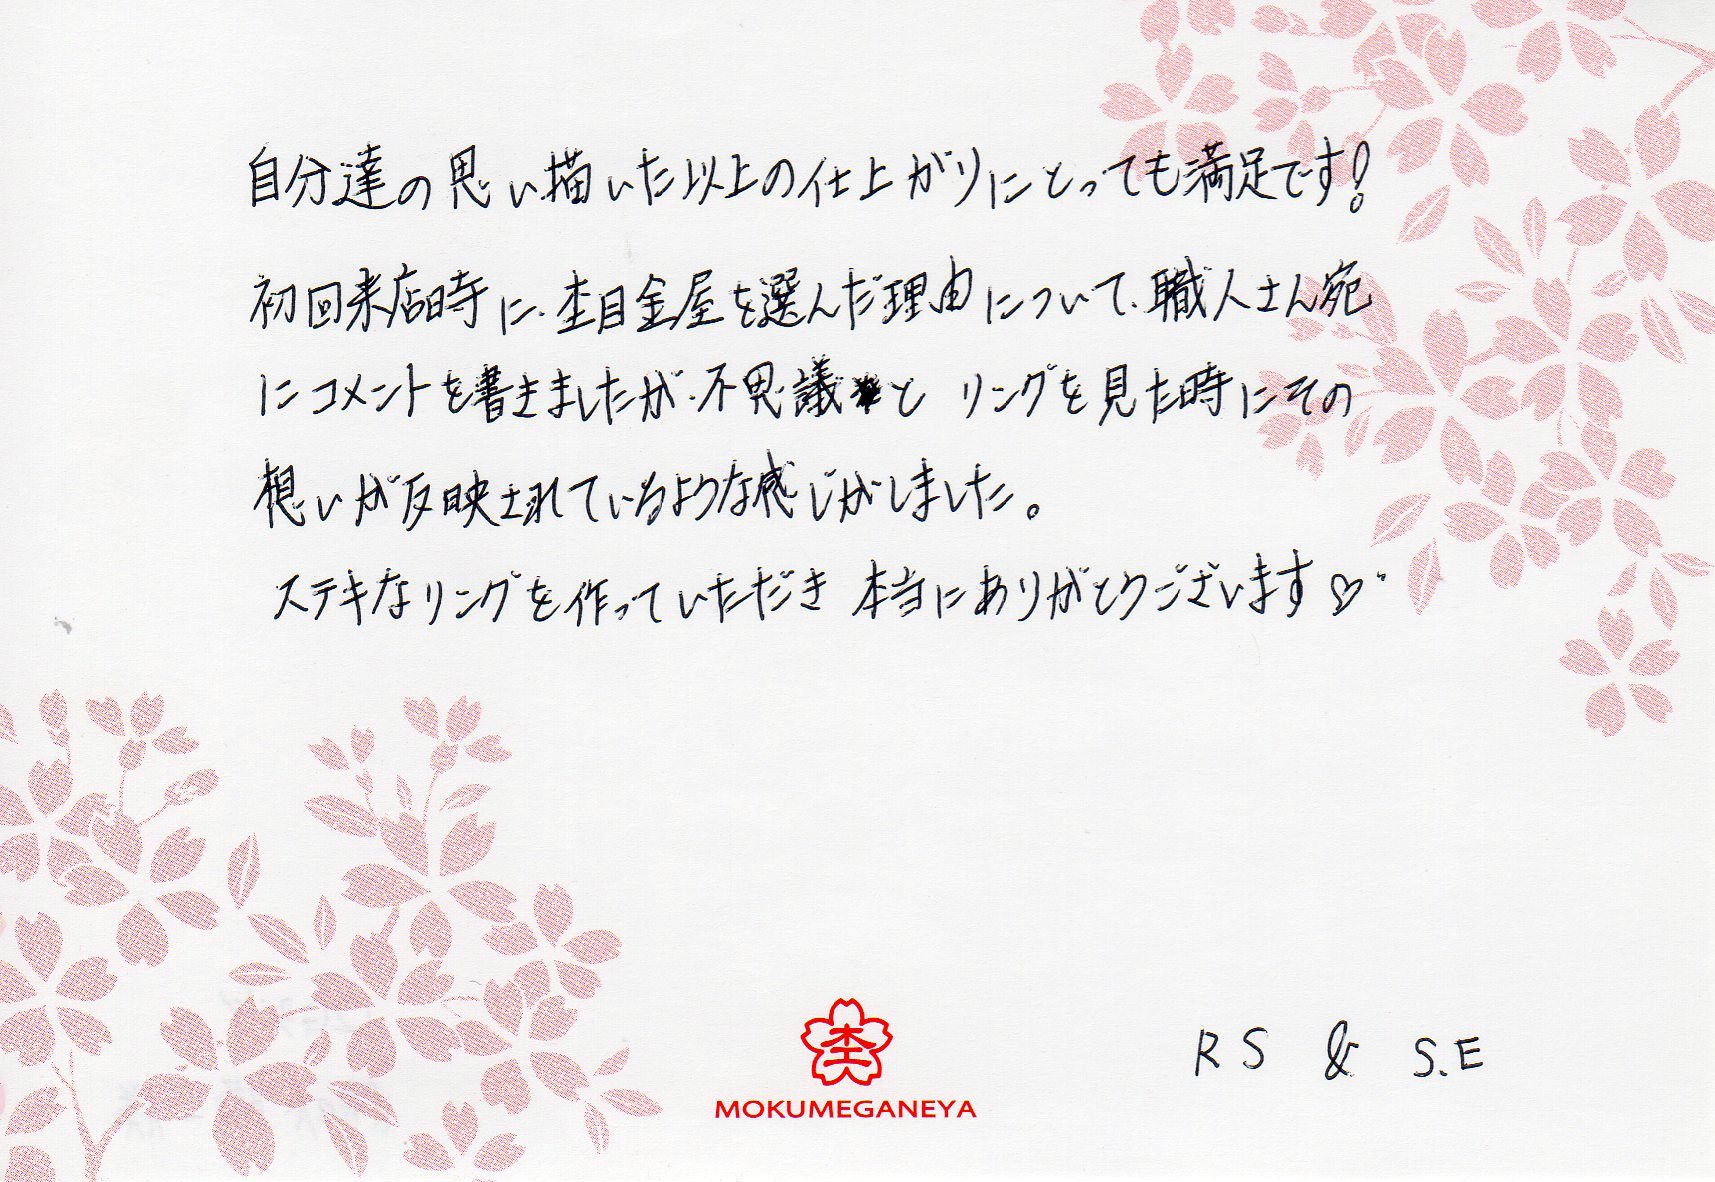 自分達の思い描いた以上の仕上がりにとっても満足です!
初回来店時に、杢目金屋を選んだ理由について、職人さん宛
にコメントを書きましたが、不思議と リングを見た時にその
想いが反映されているような感じがしました。
ステキなリングを作っていただき 本当にありがとうございます♡
杢
MOKUMEGANEYA
R S & S.E